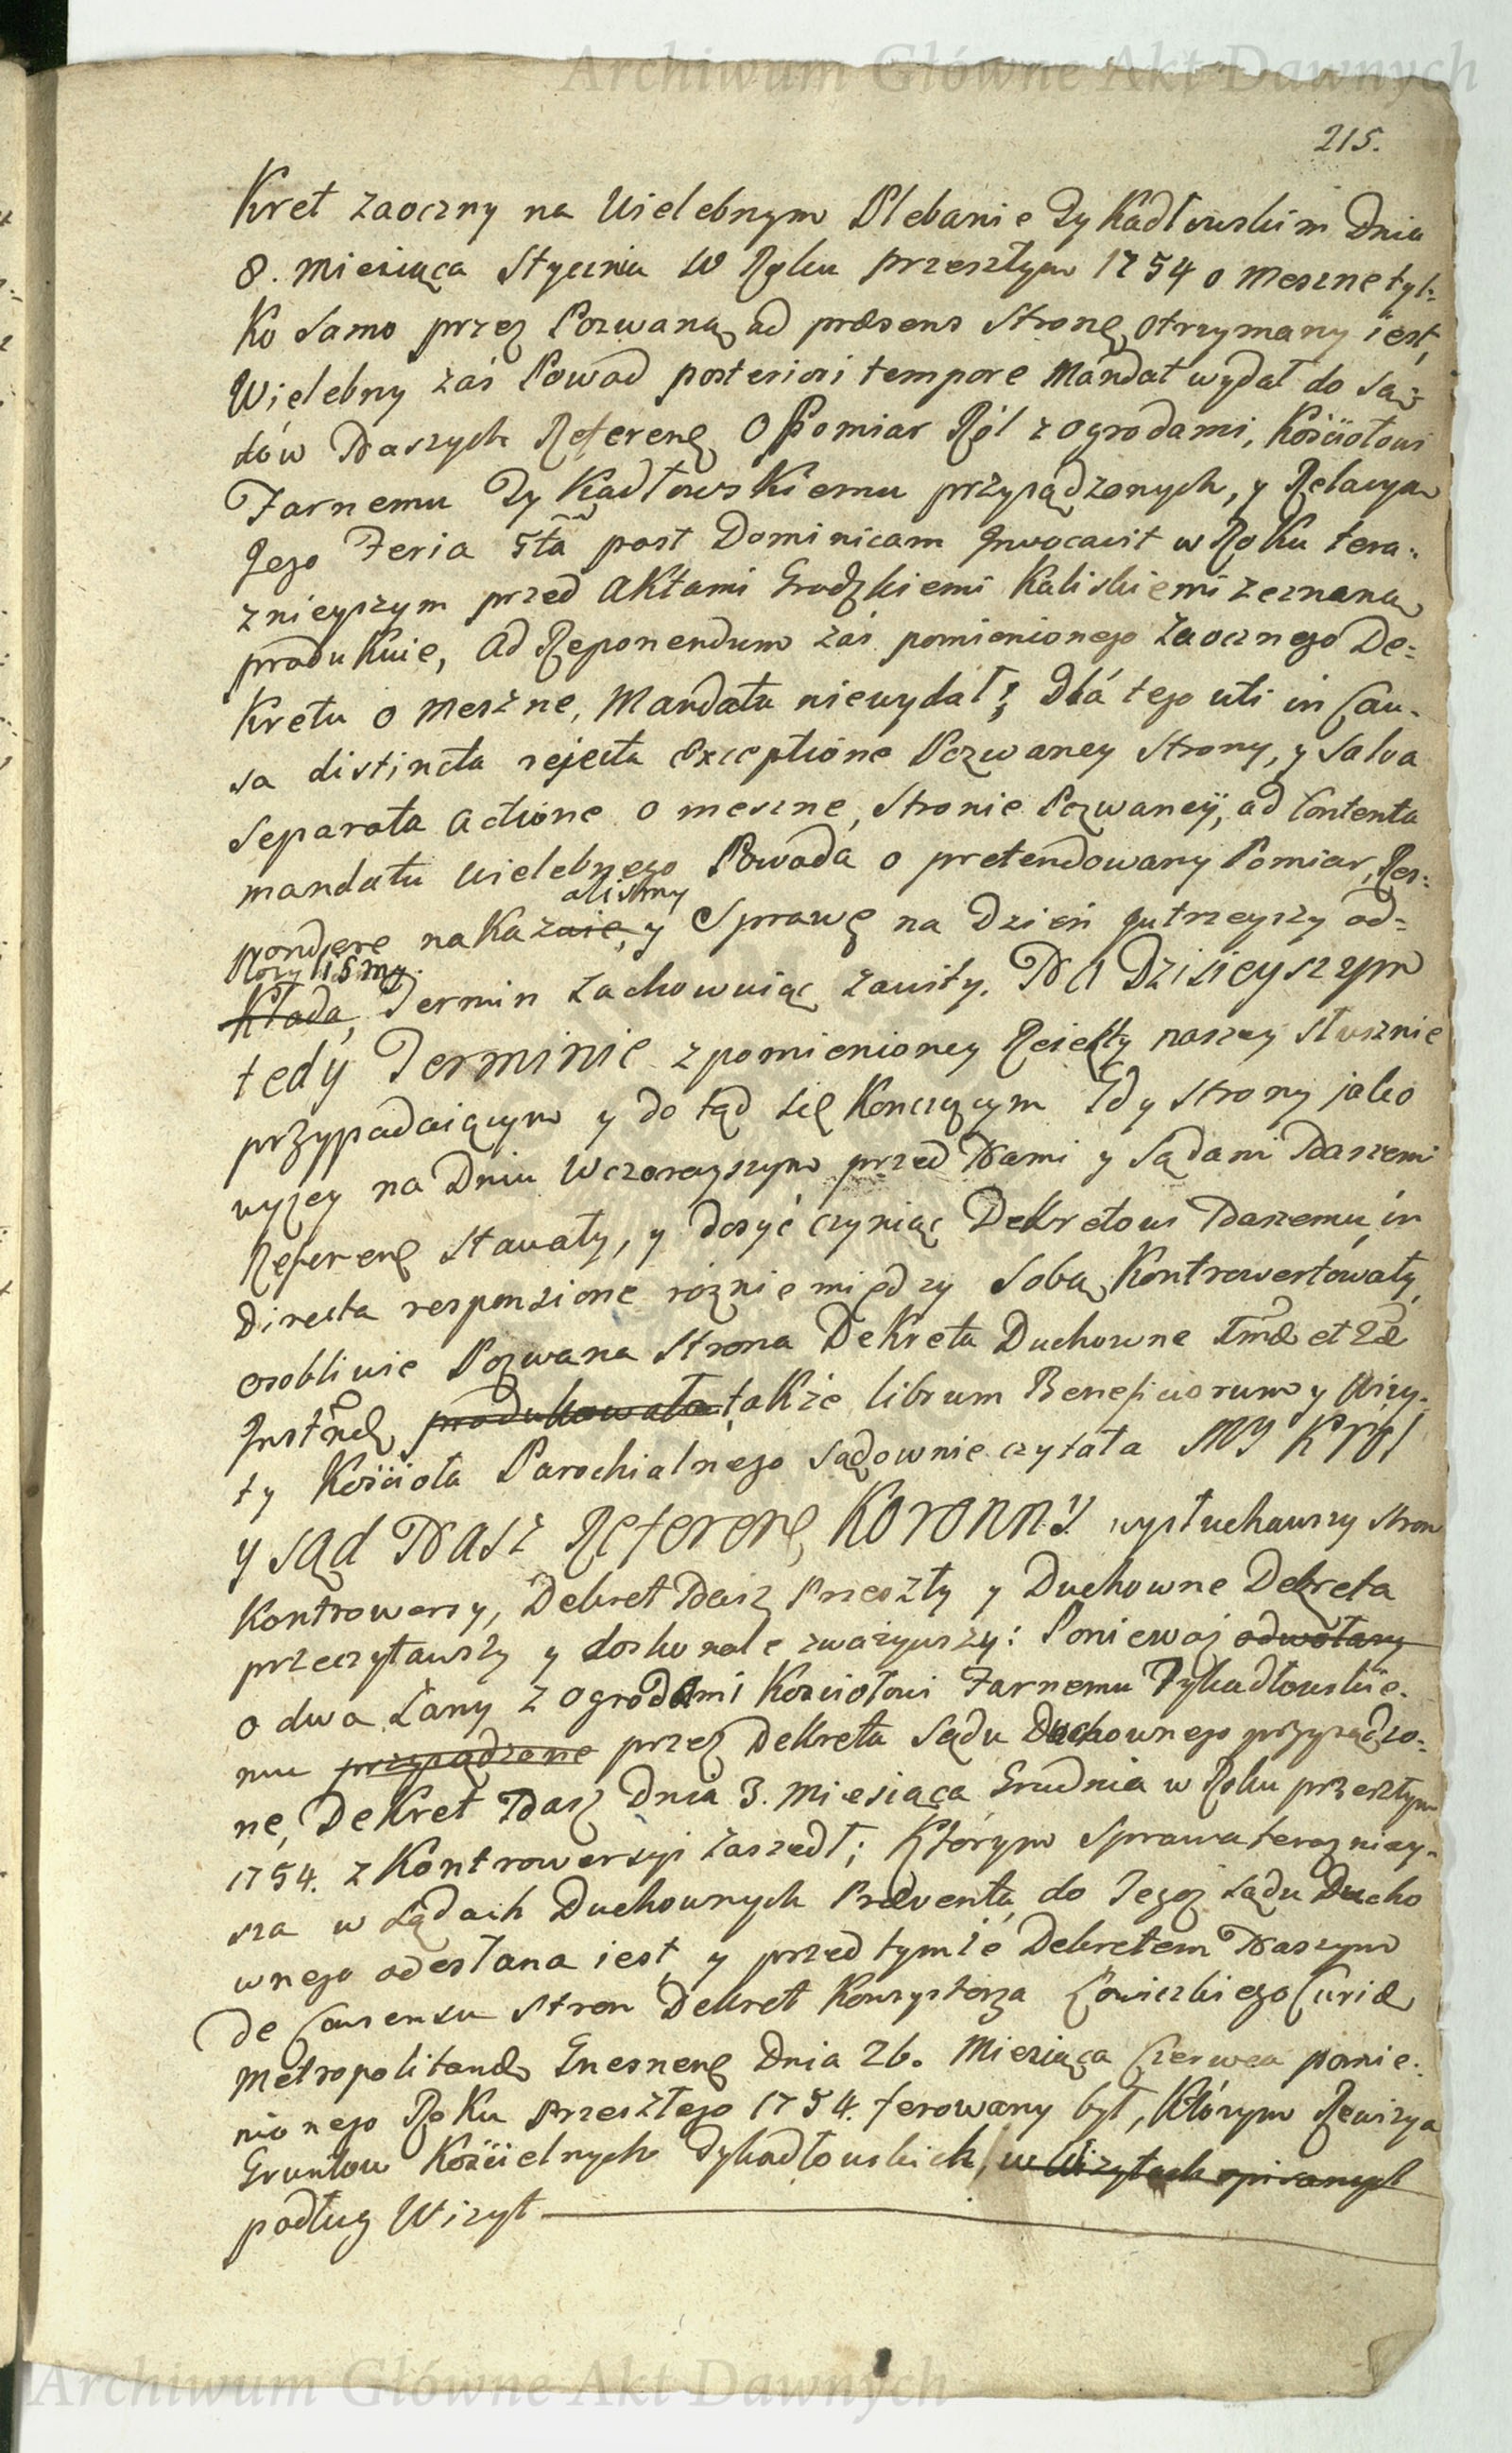 Archiwum Główne Akt Dawnych
215.
Kret zaoczny na Wielebnym Plebanie Tykadłowskim Dnia
8. Miesiąca Stycznia W Roku przeszłym 1754 o meszne tyl=
ko samo przez Pozwaną ad præsens Stronę otrzymany iest,
Wielebny zaś Powod posteriori tempore Mandat wydał do Są=
dów Naszych Referenę O Pomiar Ról z ogrodami, Kościołowi
Farnemu Tykadłowskiemu przysądzonych, y Relacyą
Jego Feria 5ta post Dominicam Invocavit w Roku tera=
znieyszym przed Aktami Grodzkiemi Kaliskiemi zeznaną
produkuie, Ad Reponendum zaś pomienionego zaocznego De=
kretu o meszne, Mandatu niewydał; Dla tego uti in Cau=
sa distincta rejecta exceptione Pozwaney Strony, y salva
separata actione o meszne, Stronie Pozwaney, ad Contenta
mandatu Wielebnego Powoda o pretendowany Pomiar, Res=
alismy
pondere nakazuie, y Sprawę na Dzień Jutrzeyszy od=
łozylismy
kłada, Termin zachowuiąc zawity. NA Dzisieyszym
tedy Terminie z pomienioney Reiekty naszey słusznie
przypadaiącym y do tąd się Konczącym Gdy strony jako
wyzey na Dniu Wczorayszym przed Nami y Sądami Naszemi
Referenę stawały, y dosyć czyniąc Dekretowi Naszemu, in
directa responsione roznie między Sobą Kontrowertowały,
osobliwie Pozwana strona Dekreta Duchowne Imæ et 2dæ
Instnæ produkowała, także librum Beneficiorum y Wizy=
ty Kościoła Parochialnego sądownie czytała MY KRól
y sąd Nasz Referenę KORONNY. wysłuchawszy stron
Kontrowersy, Dekret Nasz Przeszły y Duchowne Dekreta
przeczytawszy y doskonale zwazywszy: Poniewaz odwołany
o dwa Łany z Ogrodami Kościołowi Farnemu Tykadłowskie=
mu przysądzone przez Dekreta Sądu Duchownego przysądzo=
ne, Dekret Nasz Dnia 3. Miesiąca Grudnia w Roku przeszłym
1754. z Kontrowersyi zaszedł; Którym Sprawa terazniey=
sza w sądach Duchownych Præventa, do Tegoz sądu Ducho
wnego odesłana iest, y przed tymże Dekretem Naszym
de Consensu stron Dekret Konsystorza Łowickiego Curiæ
Metropolitanæ Gnesnenę Dnia 26. Miesiąca Czerwca pomie=
nionego Roku przeszłego 1754. ferowany był, Którym Rewizya
Gruntow Kościelnych Tykadłowskich, w Wizytach opisanych
podług Wizyt
Archiwum Główne Akt Dawnych